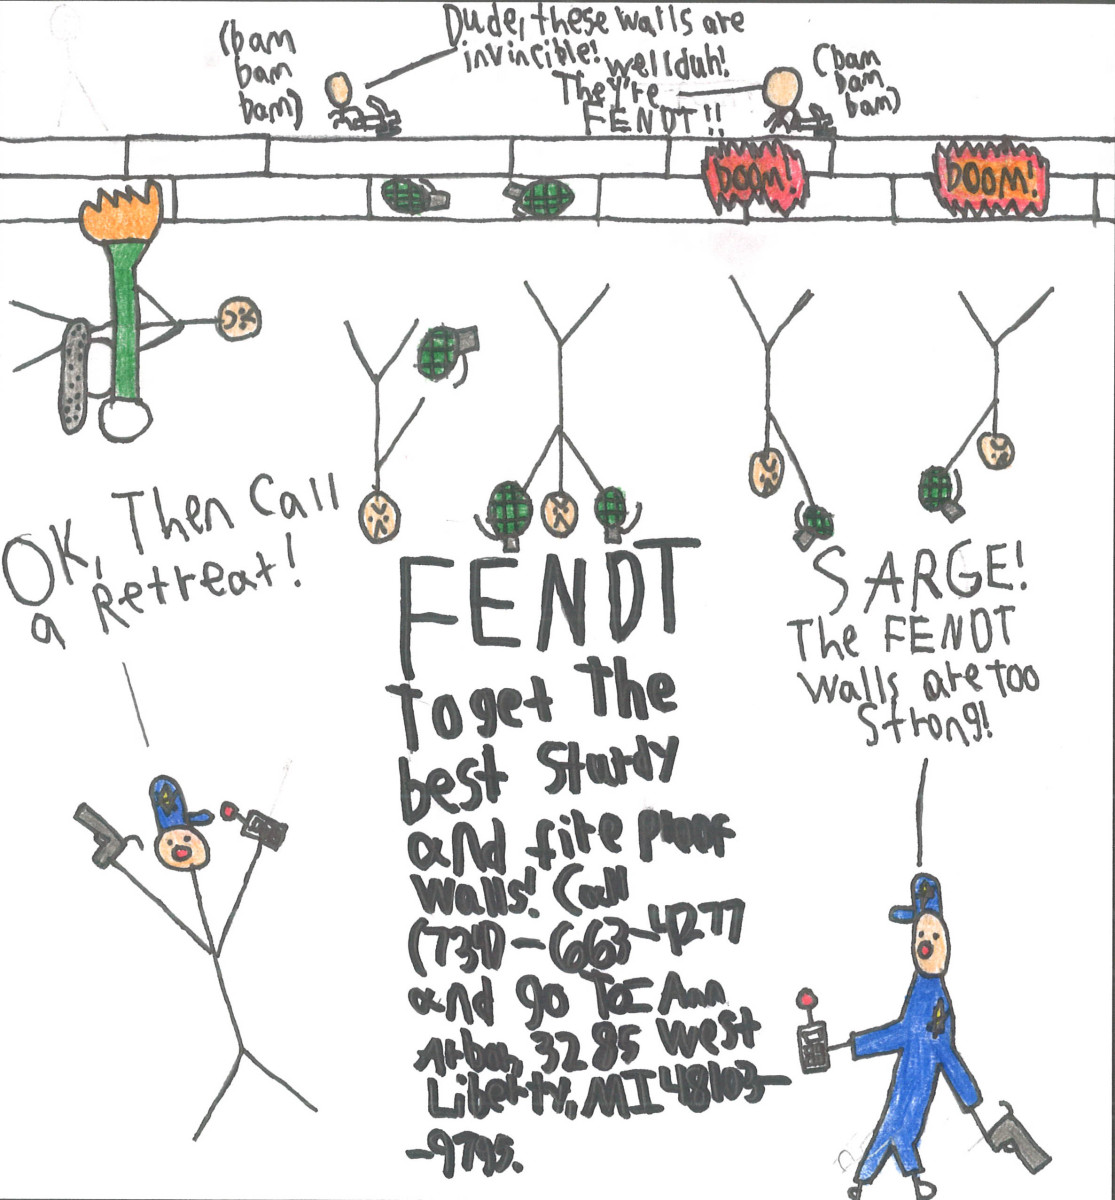 (bam
bam
bam)
Dude, these walls are
invincible!
well duh!
They're
FENDT!!
(bam
bam
bam)
BOOM!
BOOM!
OK, Then Call
a Retreat!
SARGE!
The FENDT
Walls are too
Strong!
FENDT
To get The
best Sturdy
and fire proof
Walls! Call
(734)-663-4277
and go To: Ann
Arbor, 3285 West
Liberty, MI 48103-
-9795.